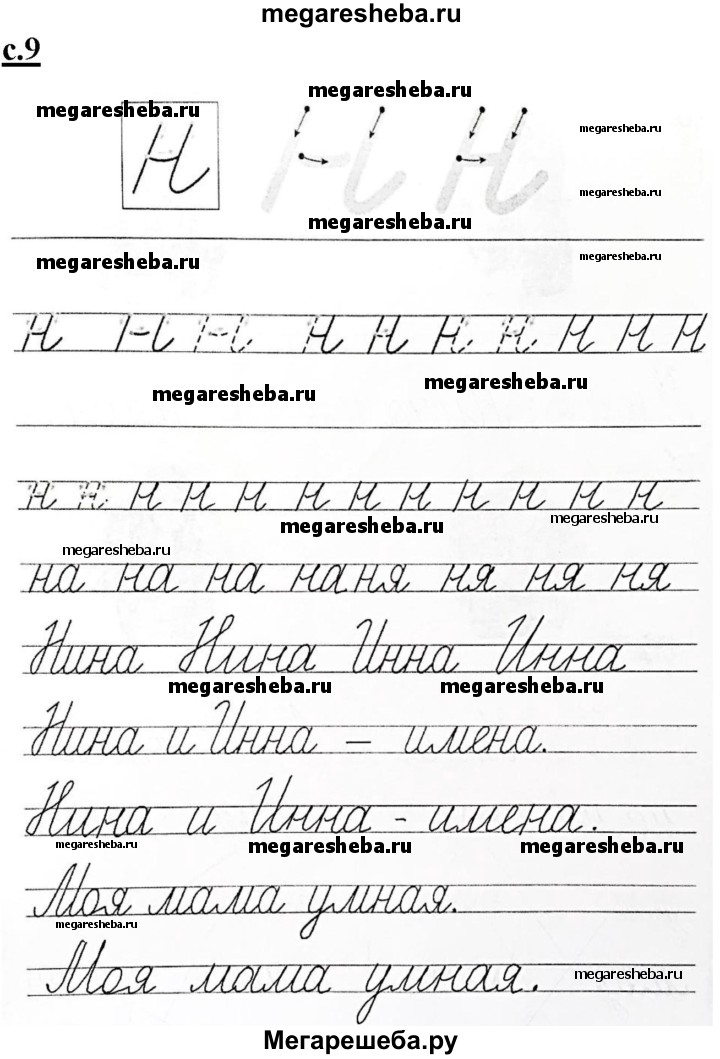 megaresheba.ru
с.9
megaresheba.ru megaresheba.ru
н н н megaresheba.ru
megaresheba.ru
megaresheba.ru
megaresheba.ru megaresheba.ru
н н н н н н н н н н
megaresheba.ru megaresheba.ru
н н н н н н н н н н н н
megaresheba.ru megaresheba.ru
megaresheba.ru
на на на на ня ня ня ня
Нина Нина Инна Инна
megaresheba.ru megaresheba.ru
Нина и Инна — имена.
Нина и Инна - имена.
megaresheba.ru megaresheba.ru megaresheba.ru
Моя мама умная.
megaresheba.ru
Моя мама умная. megaresheba.ru
Мегарешеба.ру